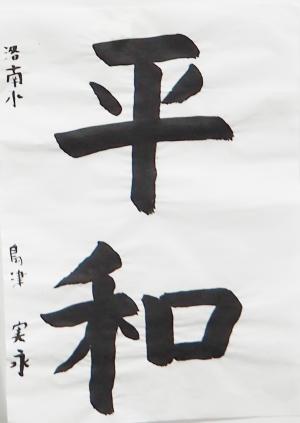 平和
洛南小
島津 実永